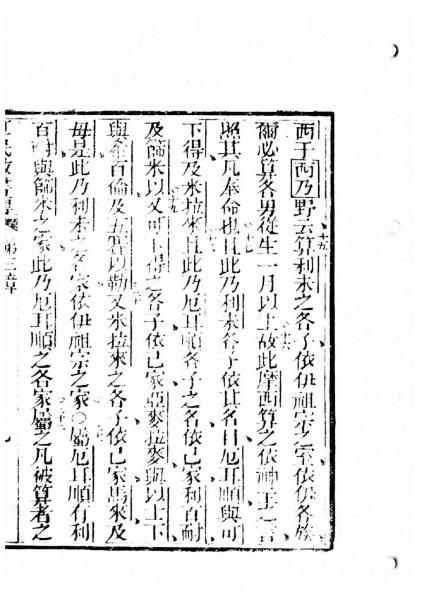 西于西乃野云算利未之各子依伊祖宗之室依伊各族
十五
爾必算各男從生一月以上故此摩西算之依神主之言
十六
照其凡奉命也且此乃利未各子依其名曰厄耳順與可
十七
下得及米拉來且此乃厄耳順各子之名依己家利百耐
及篩米以又可下得之各子依己家亞麥拉麥與以上下
十九
與希百倫及五雲以勒又米拉來之各子依己家馬來及
二十
毋是此乃利未之各家依伊祖宗之家○屬厄耳順有利
百耐與篩米之家此乃厄耳順之各家屬之凡被算者之
第三章